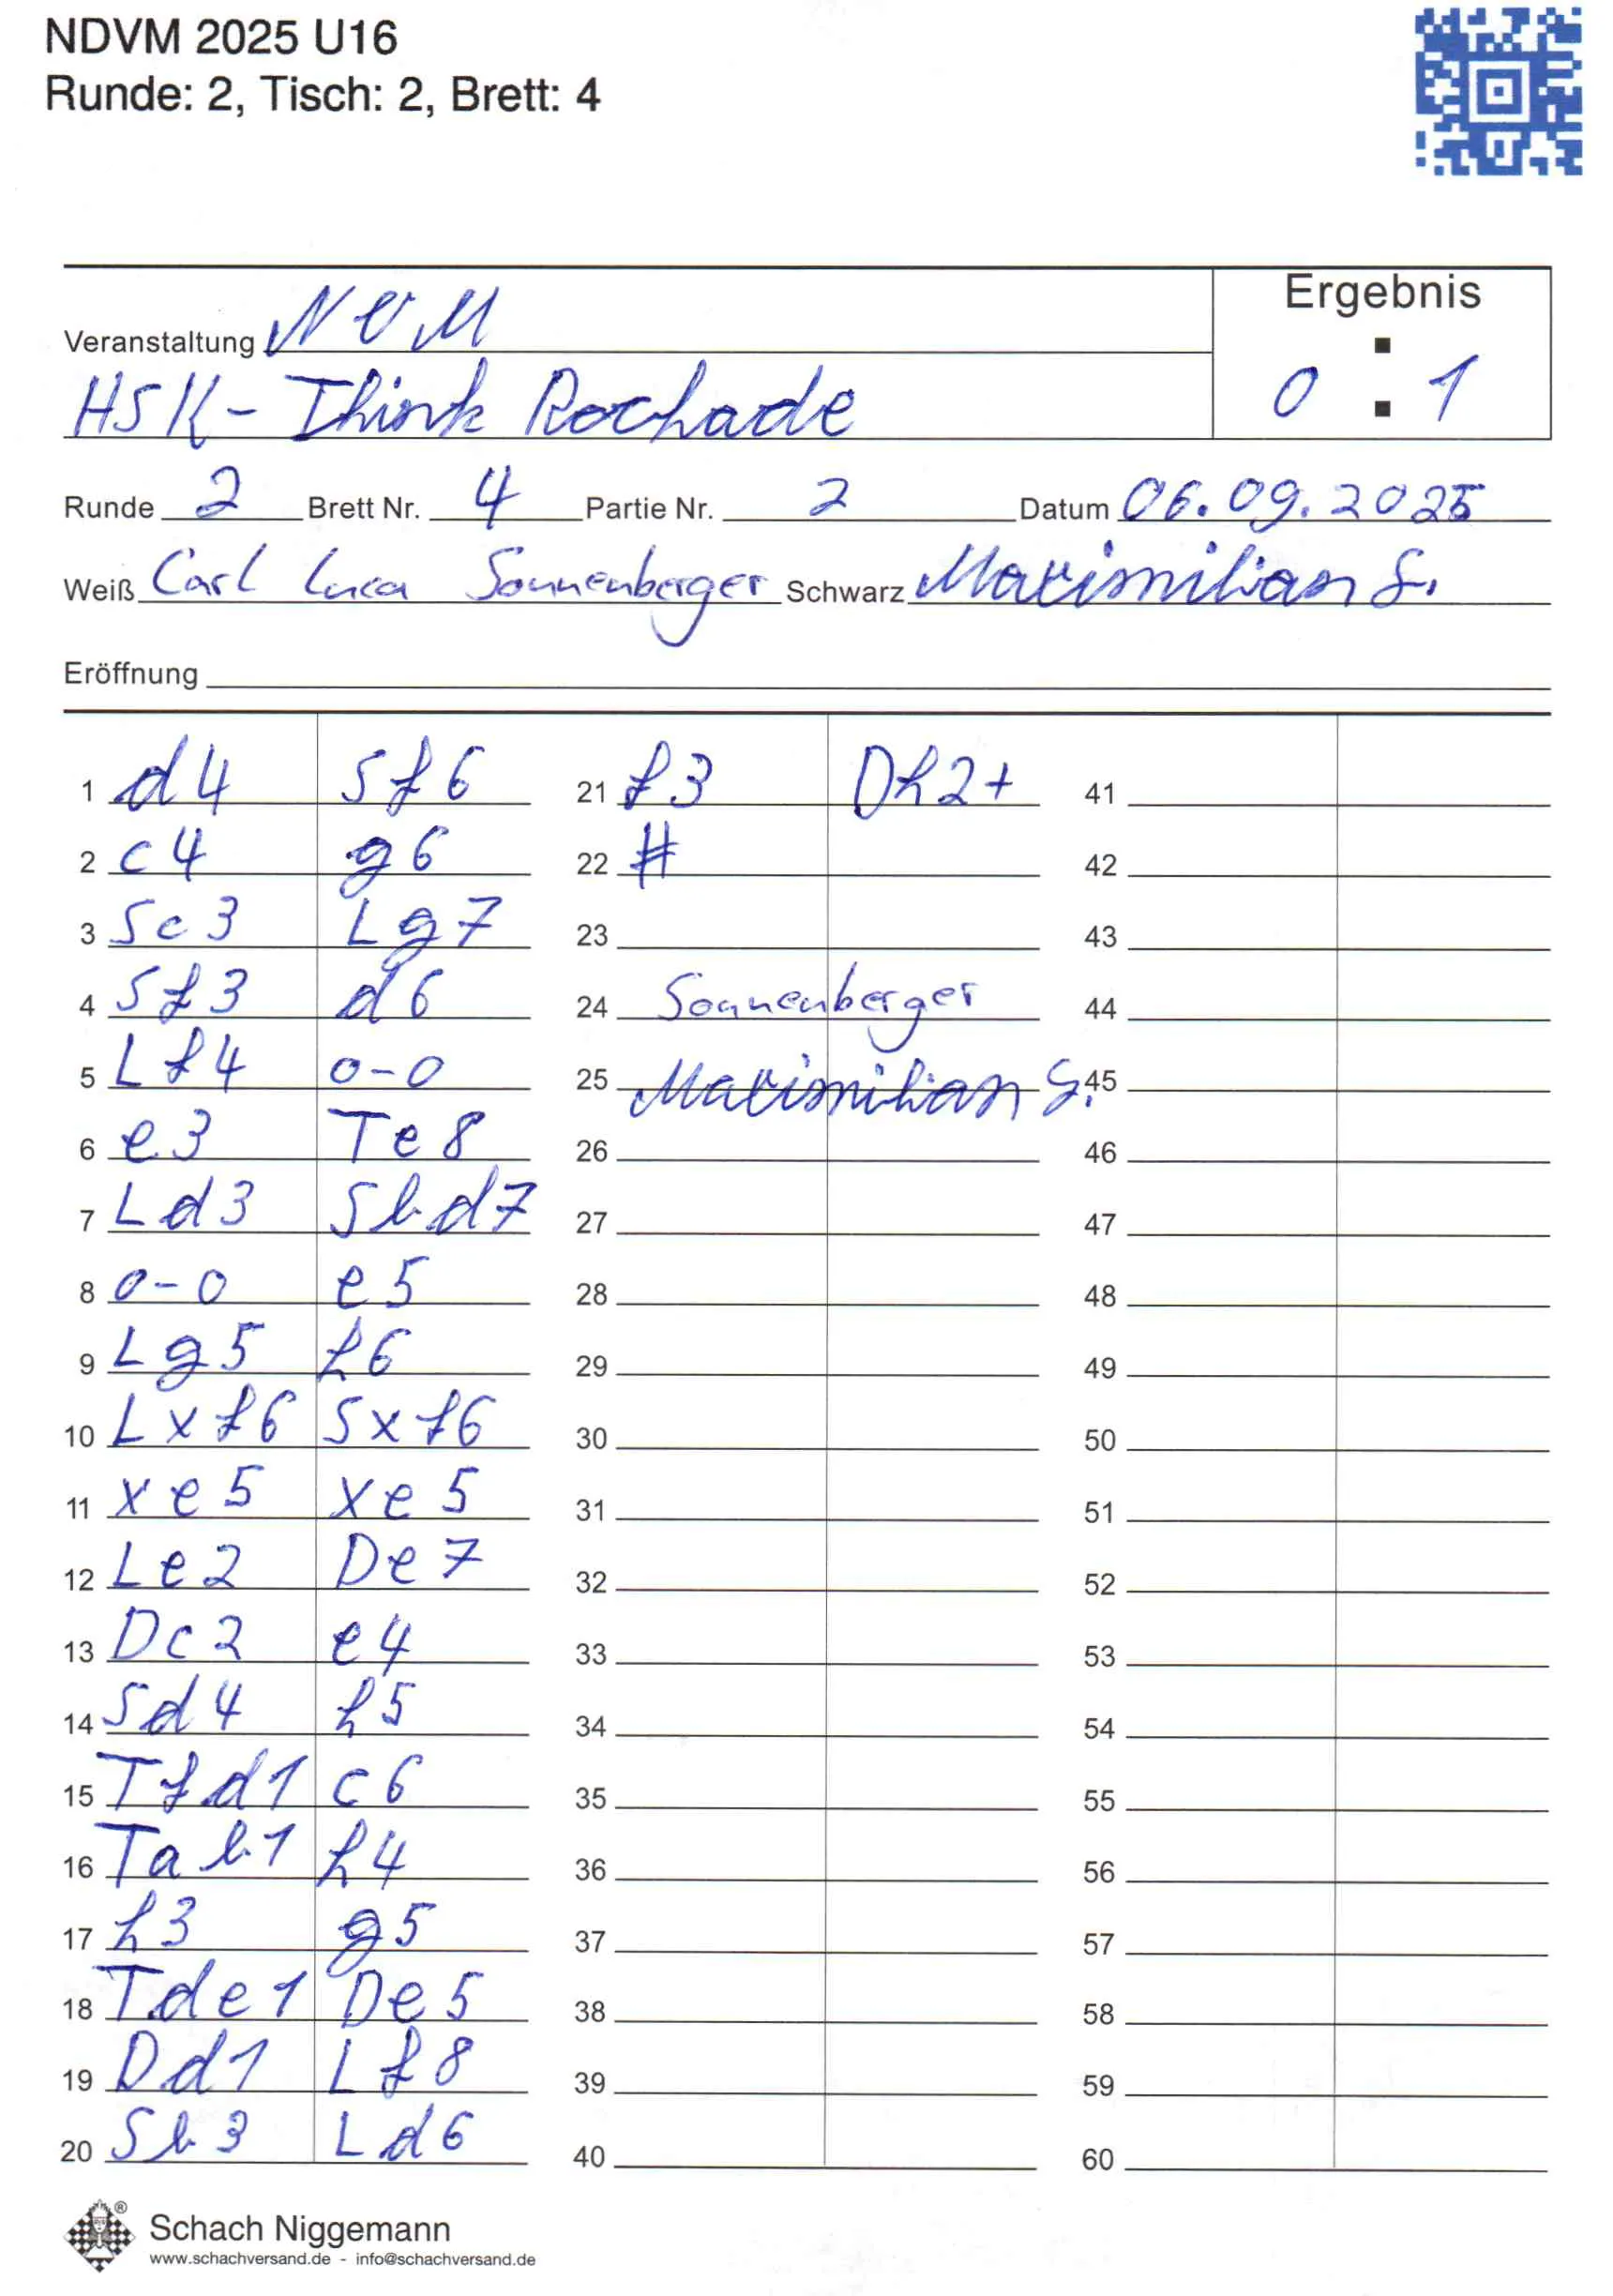 NDVM 2025 U16
Runde: 2, Tisch: 2, Brett: 4
Ergebnis
Veranstaltung NVM
HSK - Think Rochade
0 : 1
Runde 2 Brett Nr. 4 Partie Nr. 2 Datum 06.09.2025
Weiß Carl Luca Sonnenberger Schwarz Maximilian S.
Eröffnung
1 d4 Sf6 21 f3 Dh2+ 41
2 c4 g6 22 # 42
3 Sc3 Lg7 23 43
4 Sf3 d6 24 Sonnenberger 44
5 Lf4 o-o 25 Maximilian S. 45
6 e3 Te8 26 46
7 Ld3 Sbd7 27 47
8 o-o e5 28 48
9 Lg5 h6 29 49
10 Lxf6 Sxf6 30 50
11 xe5 xe5 31 51
12 Le2 De7 32 52
13 Dc2 e4 33 53
14 Sd4 h5 34 54
15 Tfd1 c6 35 55
16 Tab1 h4 36 56
17 h3 g5 37 57
18 Tde1 De5 38 58
19 Dd1 Lf8 39 59
20 Sb3 Ld6 40 60
® Schach Niggemann
www.schachversand.de - info@schachversand.de